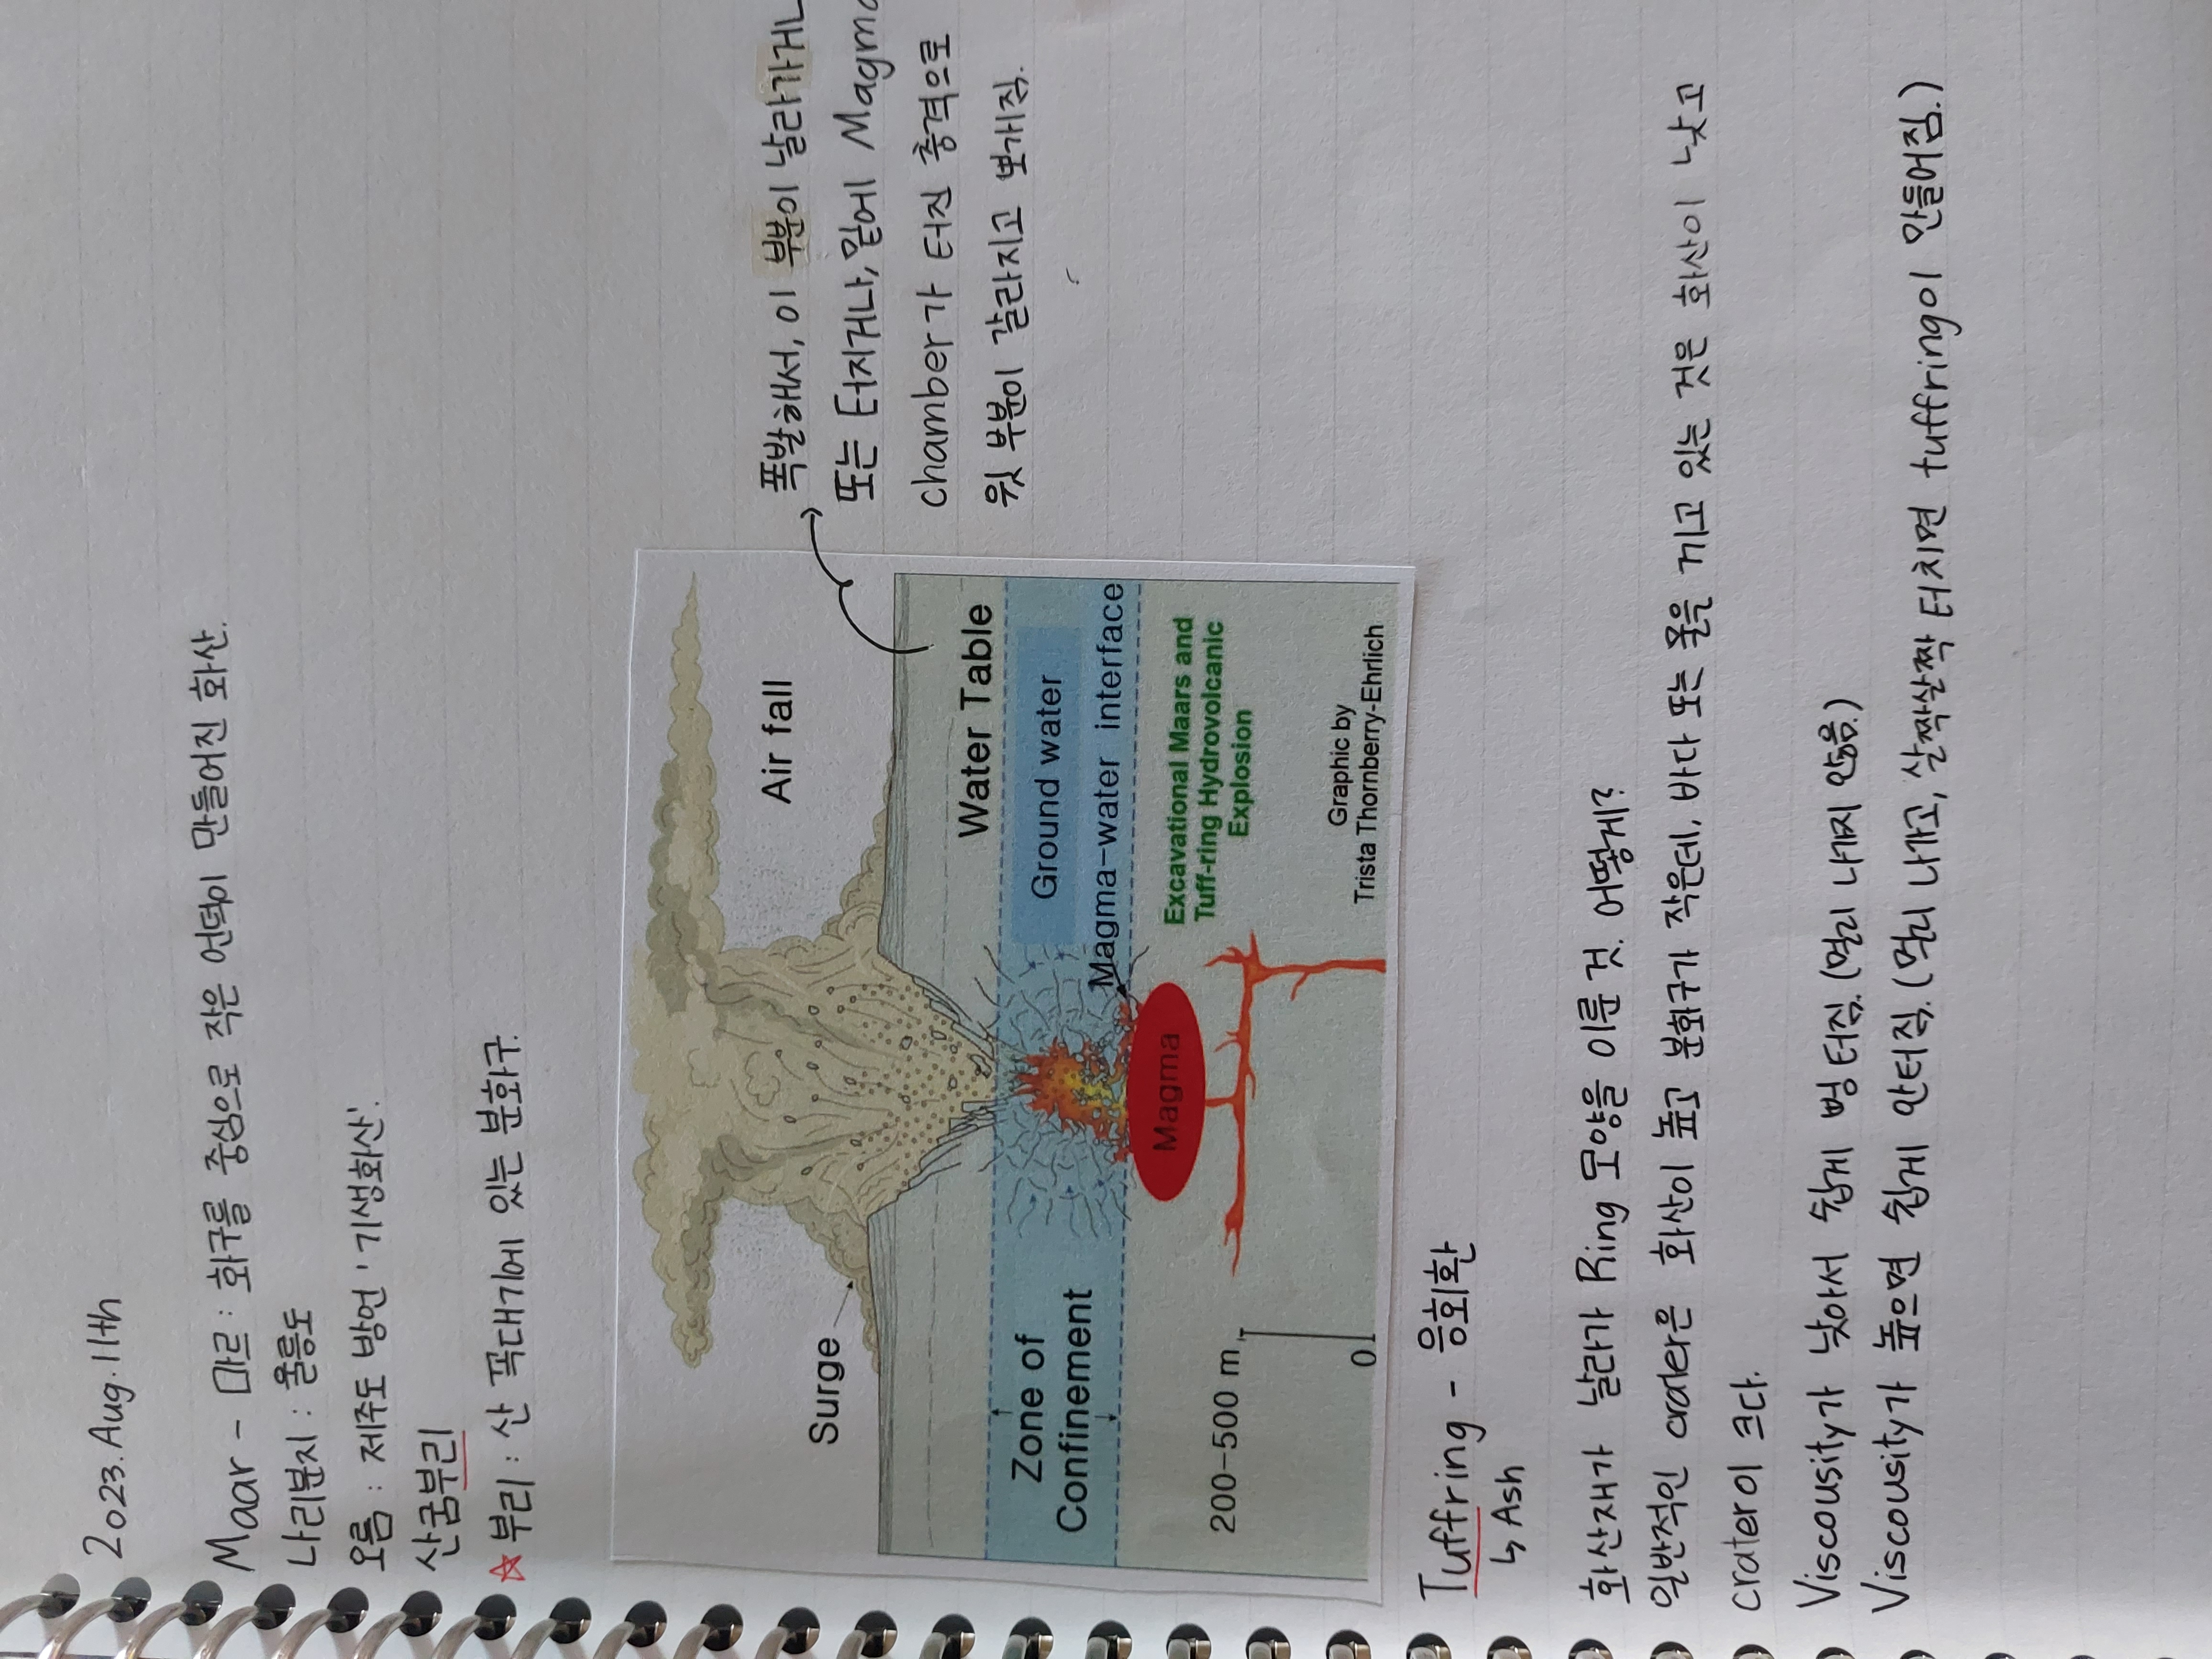 2023. Aug. 11th
Maar - 마르 : 화구를 중심으로 작은 언덕이 만들어진 화산.
나리분지 : 울릉도
오름 : 제주도 방언 '기생화산'.
산굼부리
☆ 부리 : 산 꼭대기에 있는 분화구.
폭발해서, 이 부분이 날라가거나
또는 터지거나, 밑에 Magma
chamber가 터진 충격으로
윗 부분이 갈라지고 뽀개짐.
Air fall
Surge
Water Table
Zone of
Confinement
Ground water
Magma-water interface
Magma
Excavational Maars and
Tuff-ring Hydrovolcanic
Explosion
200-500 m
0
Graphic by
Trista Thornberry-Ehrlich
Tuffring - 응회환
↳ Ash
화산재가 날라가 Ring 모양을 이룬 것. 어떻게?
일반적인 crater은 화산이 높고 분화구가 작은데, 바다 또는 물을 끼고 있는 것은 화산이 낮고
crater이 크다.
Viscousity가 낮아서 쉽게 뻥 터짐. (멀리 나가지 않음.)
Viscousity가 높으면 쉽게 안터짐. (멀리 나가고, 살짝살짝 터지면 tuffring이 안들어짐.)